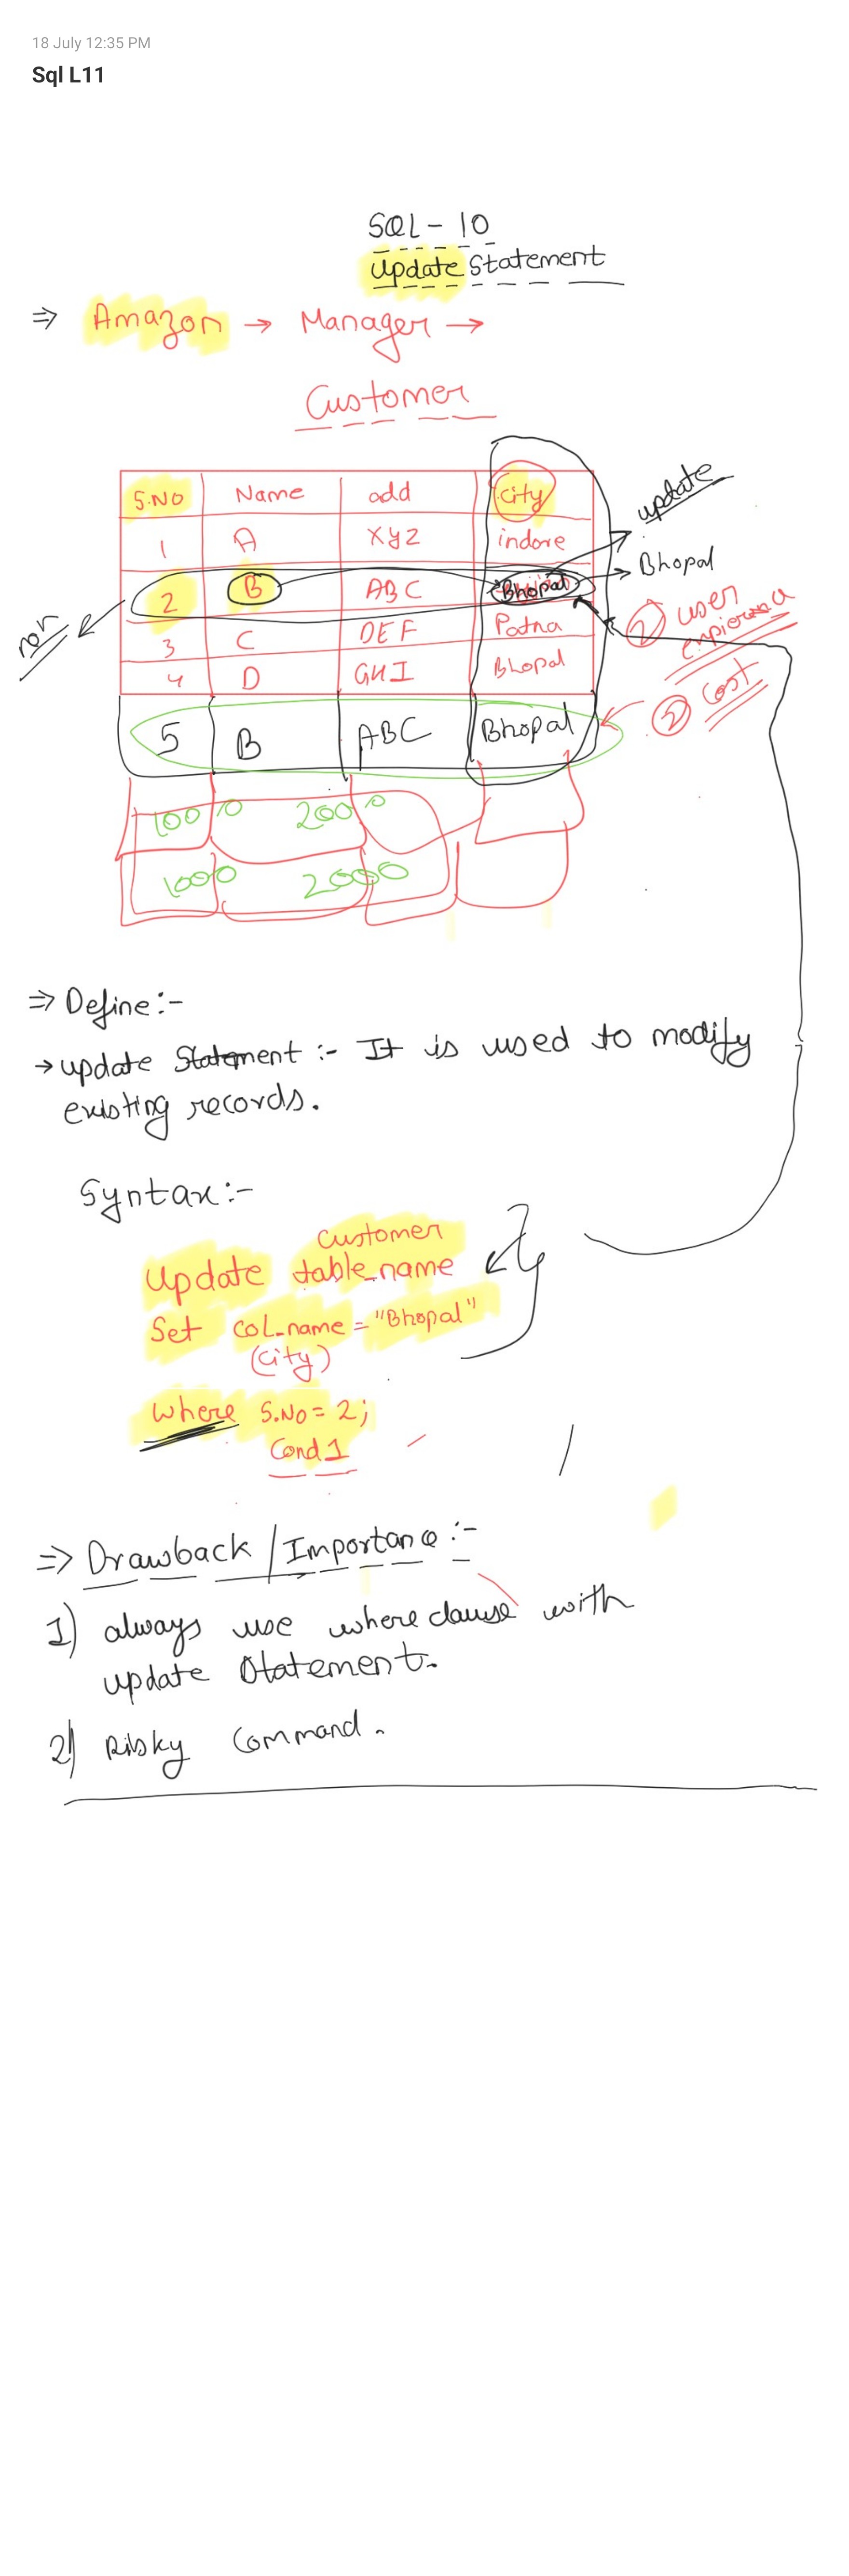 18 July 12:35 PM
Sql L11
SQL - 10
Update Statement
⇒ Amazon → Manager →
Customer
S.NO Name add City
1 A XYZ indore
2 B ABC Bhopal
3 C DEF Patna
4 D GHI Bhopal
5 B ABC Bhopal
update
Bhopal
① user
② Cost
100 % 200 %
1000 2000
⇒ Define :-
→ update Statement :- It is used to modify
existing records.
Syntax :-
Customer
Update table_name
Set Col_name = "Bhopal"
(City)
Where S.No = 2;
Cond 1
⇒ Drawback / Importance :-
1) always use where clause with
update Statement.
2) Risky Command.